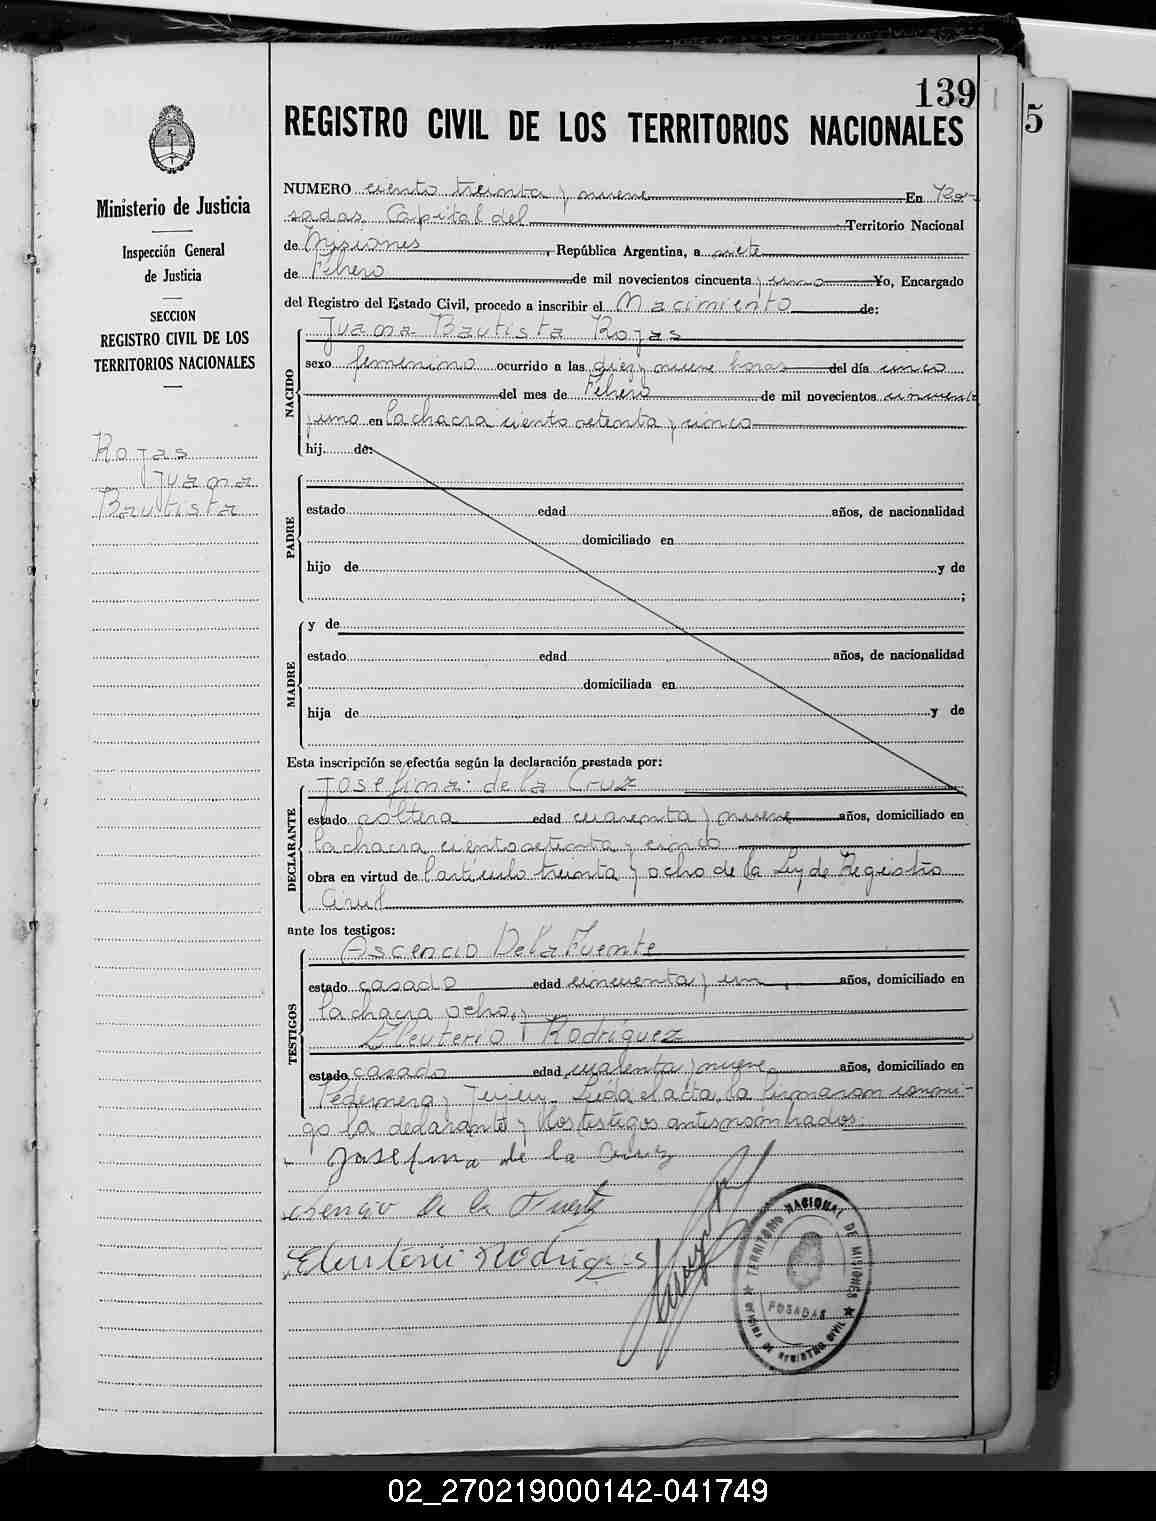 139
5
REGISTRO CIVIL DE LOS TERRITORIOS NACIONALES
Ministerio de Justicia
Inspección General
de Justicia
SECCION
REGISTRO CIVIL DE LOS
TERRITORIOS NACIONALES
Rojas
Juana
Bautista
NUMERO ciento treinta y nueve En Po-
sadas Capital del Territorio Nacional
de Misiones, República Argentina, a siete
de Febrero de mil novecientos cincuenta y uno Yo, Encargado
del Registro del Estado Civil, procedo a inscribir el Nacimiento de:
NACIDO
Juana Bautista Rojas
sexo femenino ocurrido a las diez y nueve horas del día cinco
del mes de Febrero de mil novecientos cincuenta
y uno en la chacra ciento setenta y cinco
hij de:
PADRE
estado edad años, de nacionalidad
domiciliado en
hijo de y de
;
MADRE
y de
estado edad años, de nacionalidad
domiciliada en
hija de y de
Esta inscripción se efectúa según la declaración prestada por:
DECLARANTE
Josefina de la Cruz
estado soltera edad cuarenta y nueve años, domiciliado en
la chacra ciento setenta y cinco
obra en virtud de l'artículo treinta y ocho de la Ley de Registro
Civil
ante los testigos:
TESTIGOS
Ascencio De la Fuente
estado casado edad cincuenta y un años, domiciliado en
la chacra ocho, y
Eleuterio Rodríguez
estado casado edad cuarenta y nueve años, domiciliado en
Pedernera y Jujuy. Leída el acta, la firmaron conmi-
go la declarante y los testigos antes nombrados.
Josefina de la Cruz
Asencio De la Fuente
Eleuterio Rodrigues
TERRITORIO NACIONAL DE MISIONES
POSADAS
OFICINA DE REGISTRO CIVIL
02_270219000142-041749